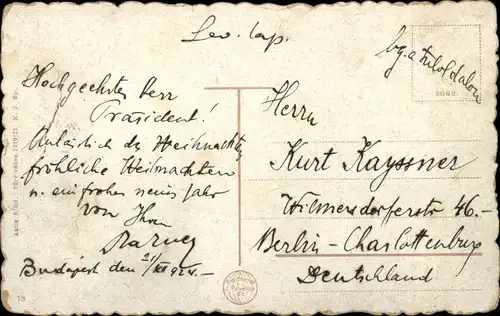 Lev. lap.
Hochgeehrter Herr
Präsident!
Anlässlich der Weihnachten
fröhliche Weihnachten
u. ein frohes neues Jahr
von Ihrem
Budapest den 21/XII 924.-
Herrn
Kurt Kayssner
Wilmersdorferstr 46.-
Berlin-Charlottenburg
Deutschland
18